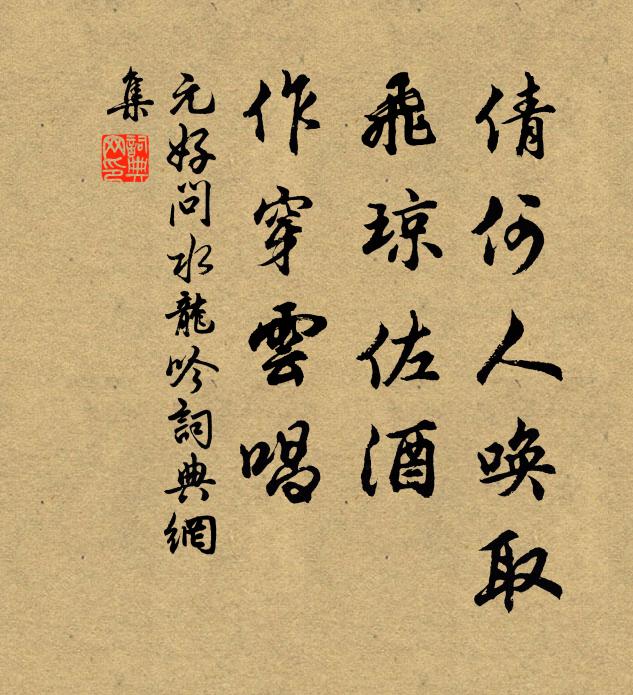 倩何人喚取
飛瓊佐酒
作穿雲唱
元好問水龍吟詞典網
集
詞典网印